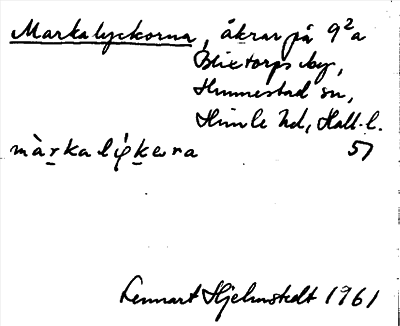 Markalyckorna, åkrar på 9²a
Blixtorps by,
Hunnestad sn,
Himle hd, Hall. l.
màrkalýkera 57
Lennart Hjelmstedt 1961